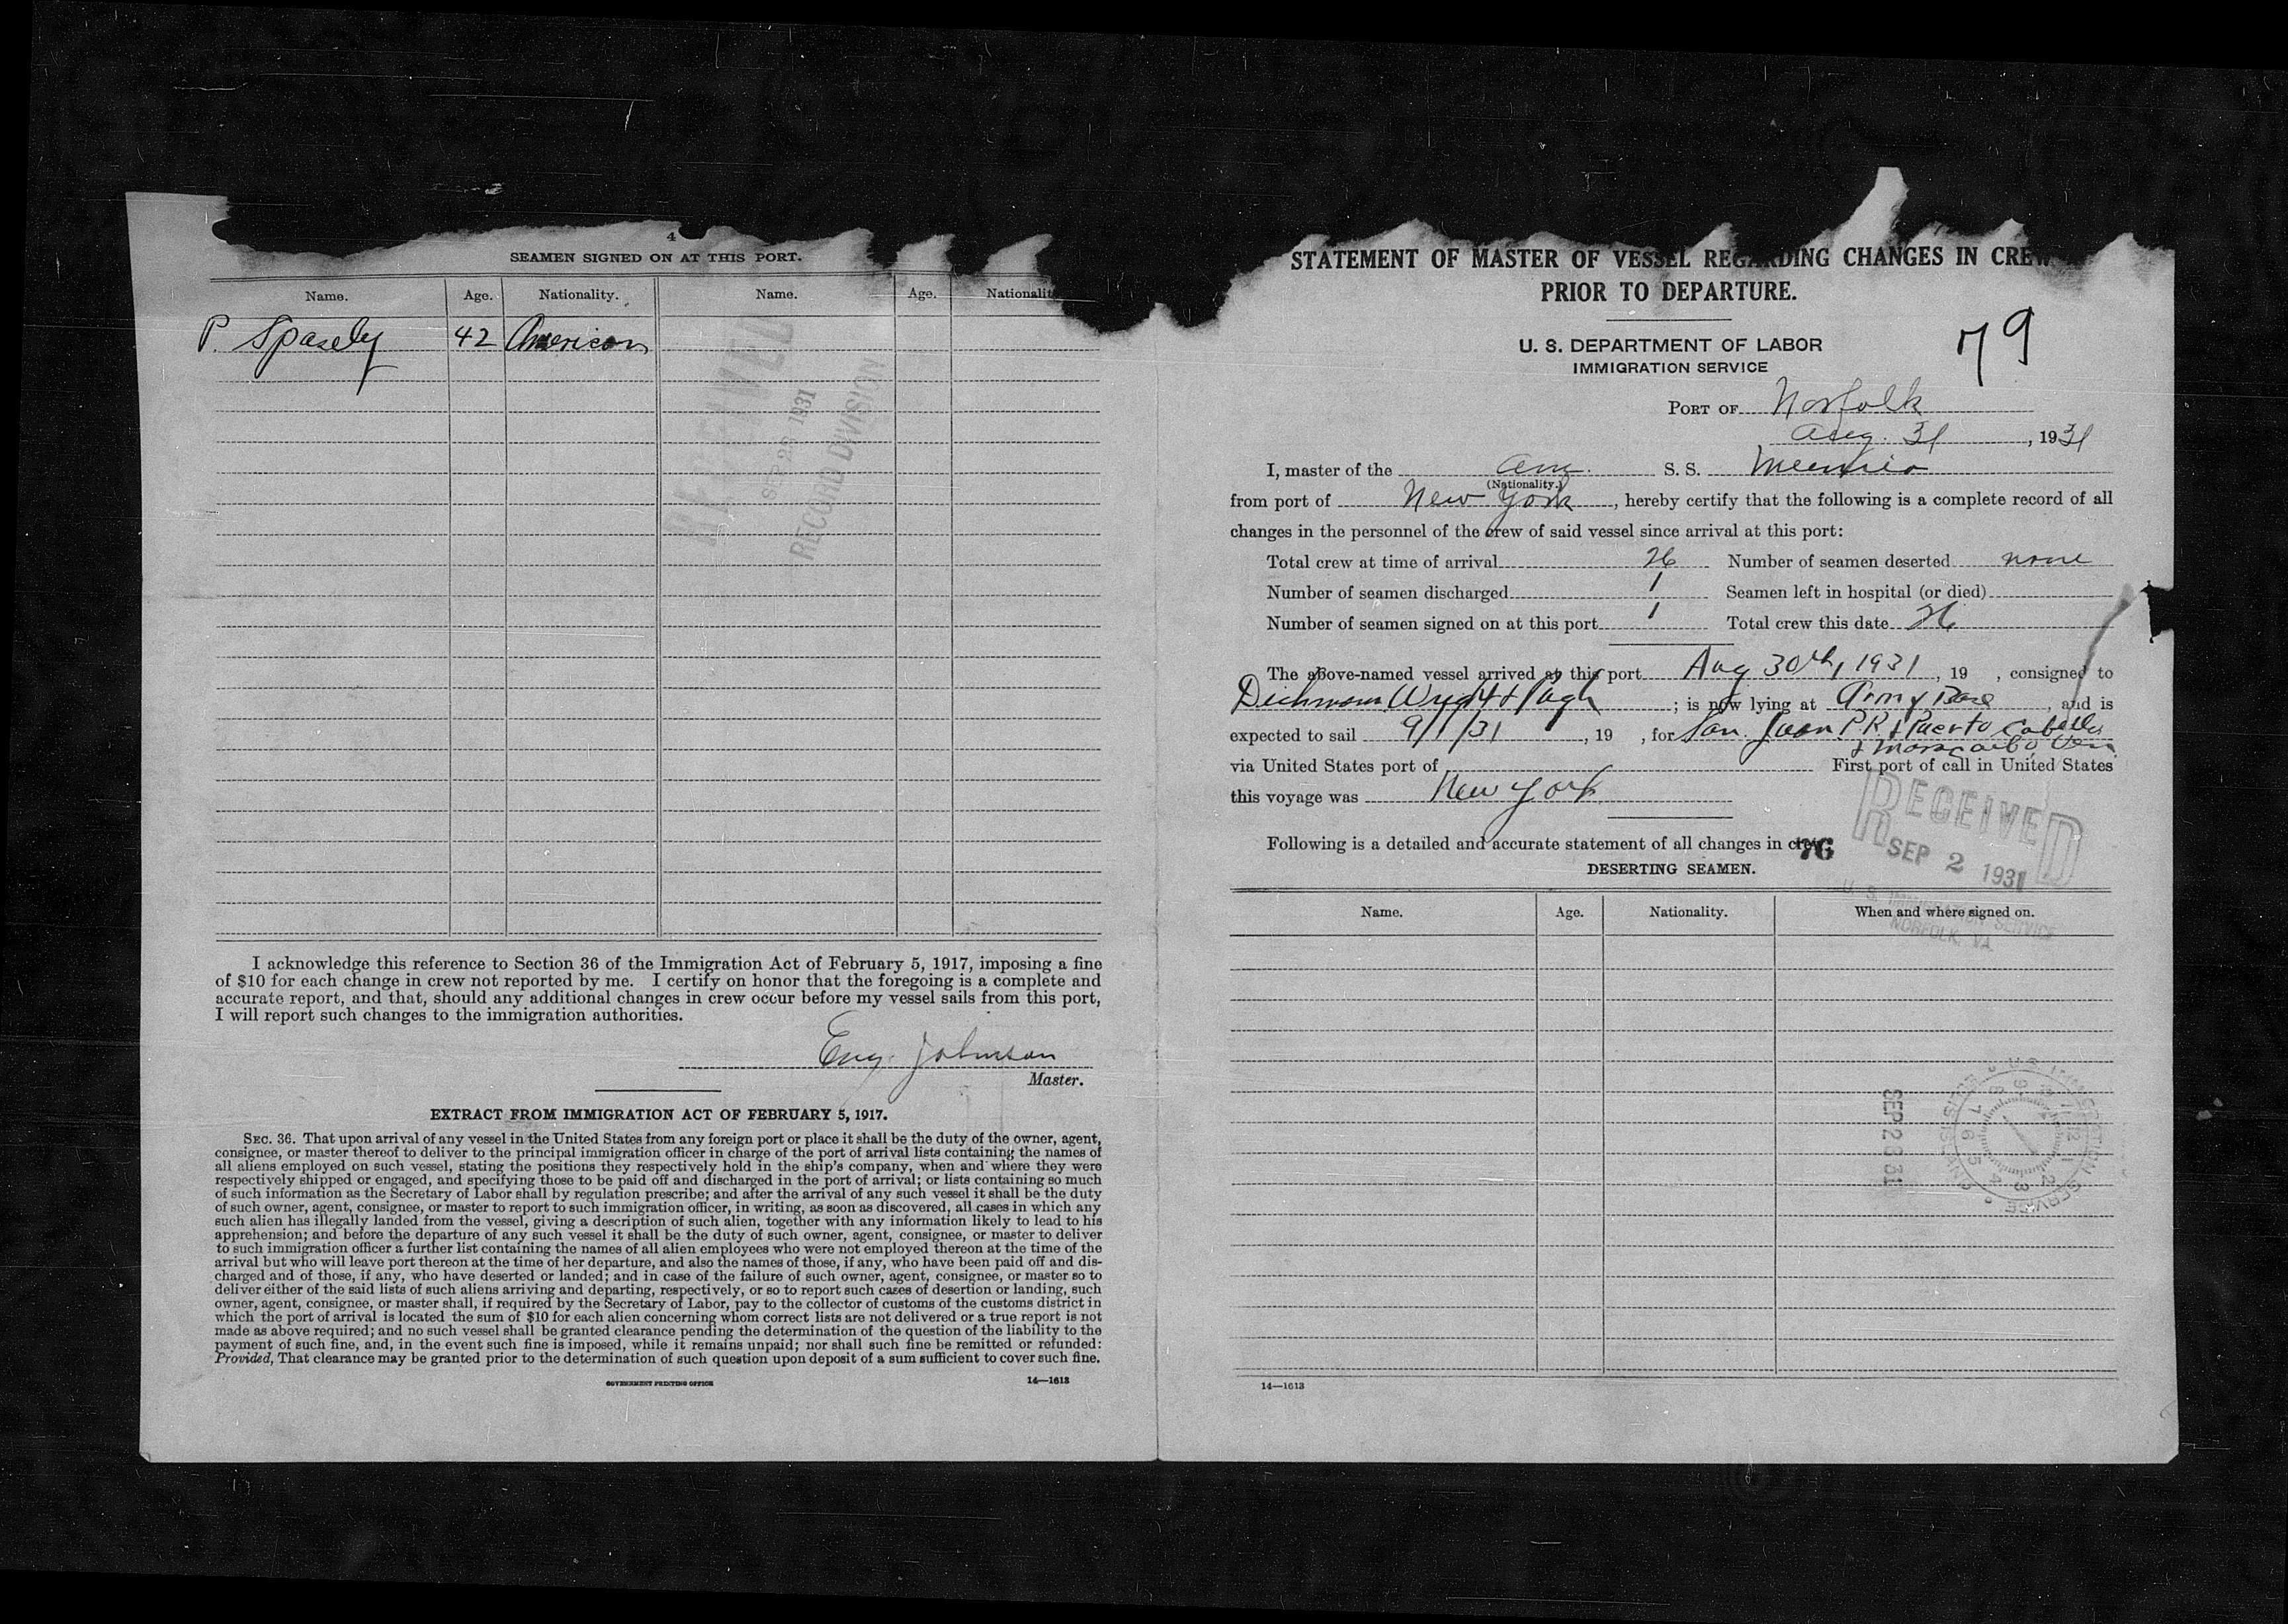 4
SEAMEN SIGNED ON AT THIS PORT.
Name. Age. Nationality. Name. Age. Nationalit
P. Spasely 42 American
RECEIVED
SEP 28 1931
RECORD DIVISION
I acknowledge this reference to Section 36 of the Immigration Act of February 5, 1917, imposing a fine
of $10 for each change in crew not reported by me. I certify on honor that the foregoing is a complete and
accurate report, and that, should any additional changes in crew occur before my vessel sails from this port,
I will report such changes to the immigration authorities.
Eug. Johnson
Master.
EXTRACT FROM IMMIGRATION ACT OF FEBRUARY 5, 1917.
SEC. 36. That upon arrival of any vessel in the United States from any foreign port or place it shall be the duty of the owner, agent,
consignee, or master thereof to deliver to the principal immigration officer in charge of the port of arrival lists containing the names of
all aliens employed on such vessel, stating the positions they respectively hold in the ship's company, when and where they were
respectively shipped or engaged, and specifying those to be paid off and discharged in the port of arrival; or lists containing so much
of such information as the Secretary of Labor shall by regulation prescribe; and after the arrival of any such vessel it shall be the duty
of such owner, agent, consignee, or master to report to such immigration officer, in writing, as soon as discovered, all cases in which any
such alien has illegally landed from the vessel, giving a description of such alien, together with any information likely to lead to his
apprehension; and before the departure of any such vessel it shall be the duty of such owner, agent, consignee, or master to deliver
to such immigration officer a further list containing the names of all alien employees who were not employed thereon at the time of the
arrival but who will leave port thereon at the time of her departure, and also the names of those, if any, who have been paid off and dis-
charged and of those, if any, who have deserted or landed; and in case of the failure of such owner, agent, consignee, or master so to
deliver either of the said lists of such aliens arriving and departing, respectively, or so to report such cases of desertion or landing, such
owner, agent, consignee, or master shall, if required by the Secretary of Labor, pay to the collector of customs of the customs district in
which the port of arrival is located the sum of $10 for each alien concerning whom correct lists are not delivered or a true report is not
made as above required; and no such vessel shall be granted clearance pending the determination of the question of the liability to the
payment of such fine, and, in the event such fine is imposed, while it remains unpaid; nor shall such fine be remitted or refunded:
Provided, That clearance may be granted prior to the determination of such question upon deposit of a sum sufficient to cover such fine.
GOVERNMENT PRINTING OFFICE 14—1613
STATEMENT OF MASTER OF VESSEL REGARDING CHANGES IN CREW
PRIOR TO DEPARTURE.
79
U. S. DEPARTMENT OF LABOR
IMMIGRATION SERVICE
PORT OF Norfolk
Aug. 31, 1931
I, master of the Am. S. S.
(Nationality.)
from port of New York, hereby certify that the following is a complete record of all
changes in the personnel of the crew of said vessel since arrival at this port:
Total crew at time of arrival 26 Number of seamen deserted none
Number of seamen discharged 1 Seamen left in hospital (or died)
Number of seamen signed on at this port 1 Total crew this date 26
The above-named vessel arrived at this port Aug 30th, 1931, 19 , consigned to
Dichmann Wright & Pugh; is now lying at Army Base, and is
expected to sail 9/1/31, 19 , for San Juan P.R. & Puerto Cabello
& Maracaibo, Ven
via United States port of First port of call in United States
this voyage was New York
Following is a detailed and accurate statement of all changes in crew:
76
RECEIVED
SEP 2 1931
U. S. IMMIGRATION SERVICE
NORFOLK, VA.
DESERTING SEAMEN.
Name. Age. Nationality. When and where signed on.
SEP 28 31
14—1613